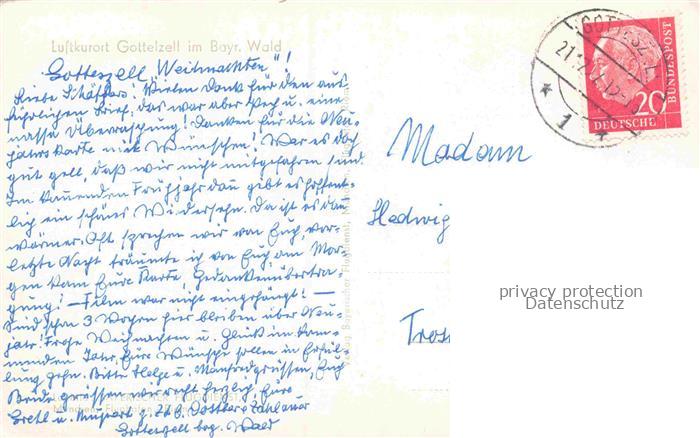 Luftkurort Gotteszell im Bayr. Wald
Gotteszell „Weihnachten"!
Liebe Schäffers! Vielen Dank für den aus-
führlichen Brief, das war aber Pech u. eine
nasse Überraschung! Danken für die Neu-
jahrskarte mit Wünschen! War es doch
gut gell, daß wir nicht mitgefahren sind
Im kommenden Frühjahr dann gibt es hoffent-
lich ein schönes Wiedersehn. Da ist es dann
wärmer. Oft sprechen wir von Euch, vor-
letzte Nacht träumte ich von Euch, am Mor-
gen kam Eure Karte. Gedankenübertra-
gung! – Film war nicht eingehängt! –
Sind schon 3 Wochen hier bleiben über Neu-
jahr! Frohe Weihnachten u. Glück im kom-
menden Jahr, Eure Wünsche sollen in Erfül-
lung gehn. Bitte Helge u. Manfred grüssen, Euch
Beide grüssen wir recht herzlich, Eure
Gretl u. z. Zt. b.
Gotteszell bay. Wald
Madam
Hedwig
Tross
20
DEUTSCHE
BUNDESPOST
1
privacy protection
Datenschutz